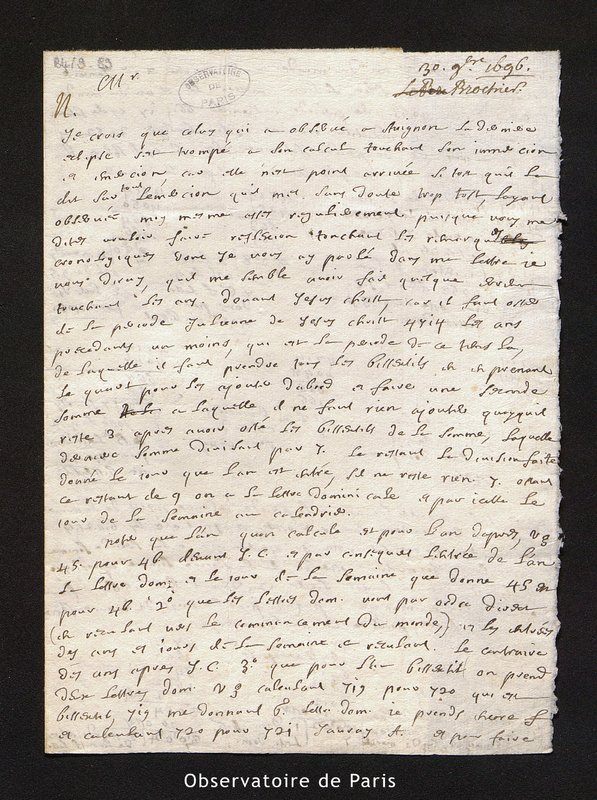 84/9.89
30. 9bre 1696.
Mr.
OBSERVATOIRE DE PARIS
Le Pere Brochier.
N.
Je crois que celuy qui a observé a Avignon la derniere
eclipse s'est trompé a son calcul touchant son immersion
et emersion car elle n'est point arrivée si tost qu'il le
dit sur tout l'emersion qu'il met sans doute trop tost, l'ayant
observée moy mesme assez regulierement puisque vous me
dites vouloir faire reflection touchant les remarques
cronologiques dont je vous ay parlé dans ma lettre je
vous diray, qu'il me semble avoir fait quelque erreur
touchant les ans devant Jesus christ, car il faut oster
de la periode Julienne de Jesus christ 4714 les ans
precedants un moins, qui est la periode de ce temps la,
de laquelle il faut prendre tous les bissextils en en prenant
le quart pour les ajouter d'abord et faire une seconde
somme a laquelle il ne faut rien ajouter quoyquil
reste 3 apres avoir osté les bissextils de la somme, laquelle
derniere somme divisant par 7. le restant la division faite
donne le jour que l'an est entré, s'il ne reste rien 7. ostant
ce restant de 9 on a la lettre dominicale et par icelle le
jour de la semaine au calendrier.
notes que l'an quon calcule est pour l'an d'apres, v g
45. pour 46 devant J.C. et par consequent l'entrée de l'an
la lettre dom. et le jour de la semaine que donne 45 est
pour 46. 2° que les lettres dom. vont par ordre direct
(en reculant vers le commencement du monde) et les entrées
des ans et jours de la semaine en reculant. le contraire
des ans apres J.C. 3° que pour l'an bissextil on prend
deux lettres dom. v g calculant 719 pour 720 qui est
bissextil, 719 me donnant 6e lettre dom. je prends
et calculant 720 pour 721 j'auray A. et pour faire
Observatoire de Paris